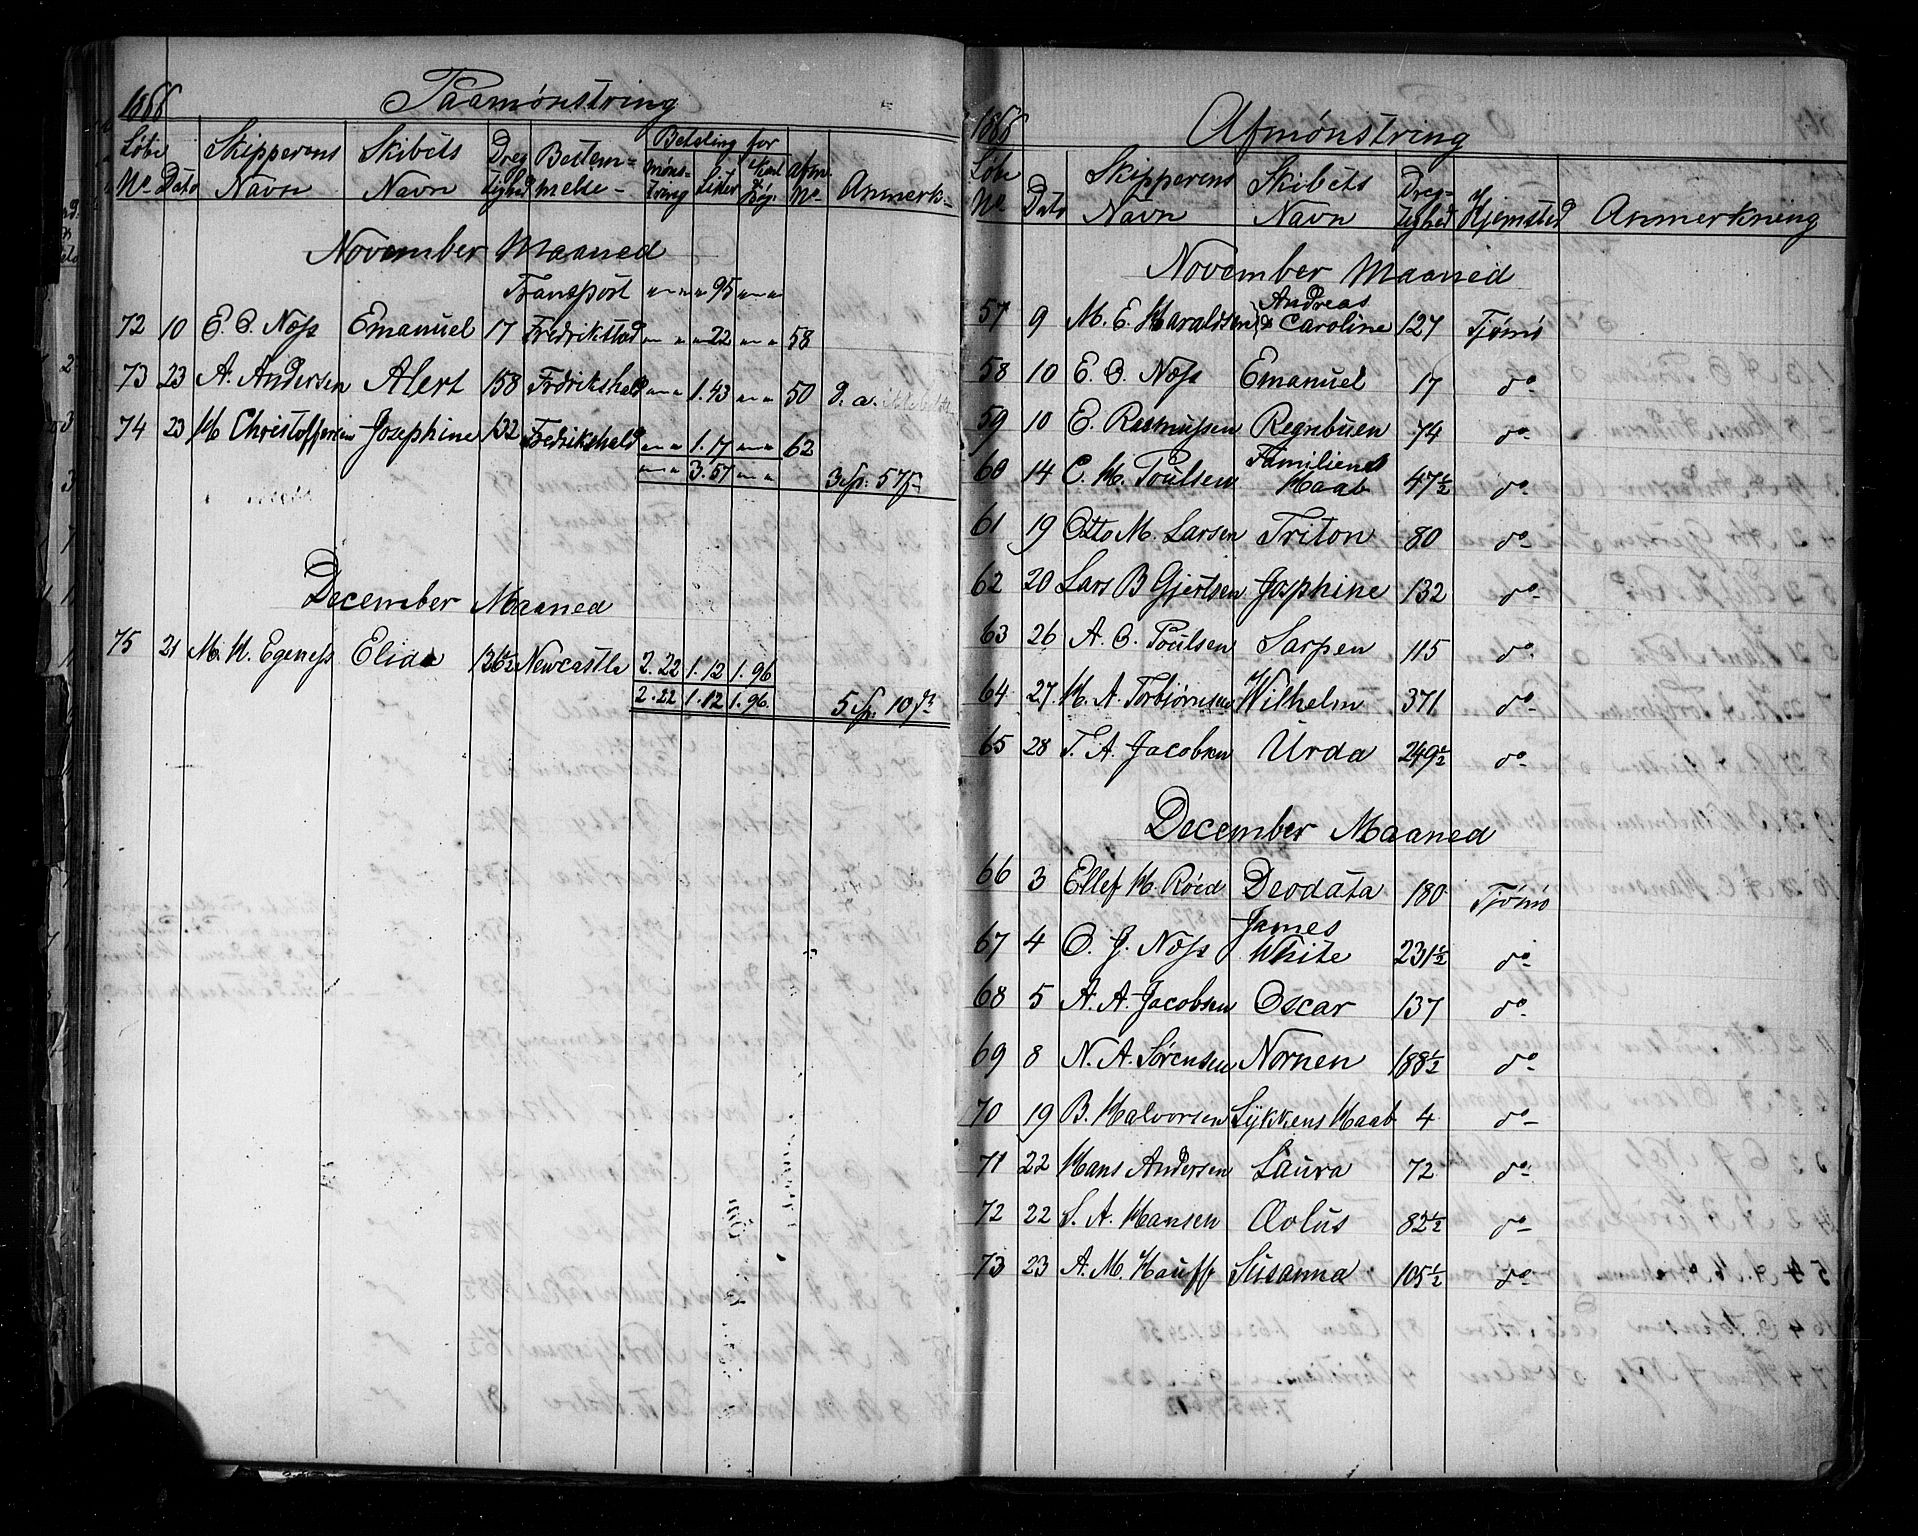 1866 Paamønstring
Løbe No Dato Skipperens Navn Skibets Navn Dreg tighed Bestem= melse - Betaling for Møns- tring Lister Afm. No Anmerk-
November Maaned
Transport " " " " 95 " "
72 10 E. O. Næss Emanuel 17 Fredrikstad " " 22 " " 58
73 23 A. Andersen Alert 158 Fredrikshald " " 1.43 " " 50 d. a.
74 23 H Christoffersen Josephine 132 Fredrikshald " " 1.17 " " 62
" " 3.57 " " 3 Sp: 57 s
December Maaned
75 21 M. H. Egeness Elida 136½ Newcastle 2.22 1.12 1.96
2.22 1.12 1.96 5 Sp: 10 s
1866 Afmønstring
Løbe No Dato Skipperens Navn Skibets Navn Dreg- tighed Hjemsted Anmerkning
November Maaned
57 9 M. E. Haraldsen Andreas & Caroline 127 Tjømø
58 10 E. O. Næss Emanuel 17 do
59 10 E. Rasmussen Regnbuen 74 do
60 14 C. H. Poulsen Familiens Haab 47½ do
61 19 Otto M. Larsen Triton 80 do
62 20 Lars B Gjertsen Josphine 132 do
63 26 A. O. Poulsen Sarpen 115 do
64 27. H. A. Torbjørnsen Wilhelm 371 do
65 28 T. A. Jacobsen Urda 249½ do
December Maaned
66 3 Ellef H. Röed Deodata 180 Tjømø
67 4 O. J. Næss James White 231½ do
68 5 A. A. Jacobsen Oscar 137 do
69 8 N. A. Sørensen Nornen 188½ do
70 19 B. Halvorsen Lykkens Haab 4 do
71 22 Hans Andersen Laura 72 do
72 22 S. A. Hansen Æolus 82½ do
73 23 A. M. Hauff Susanna 105½ do